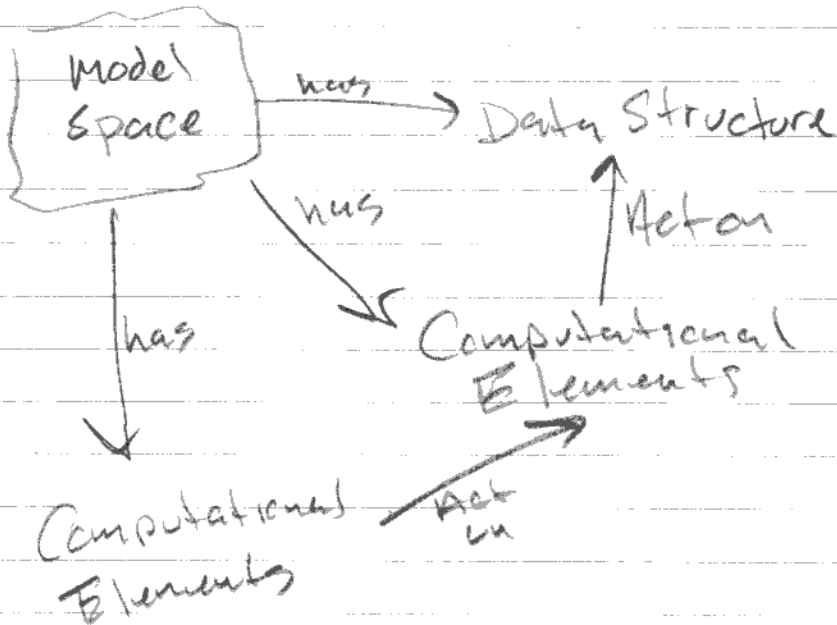 Model
Space
has
Data Structure
has
Act on
has
Computational
Elements
Computational
Elements
Act
on